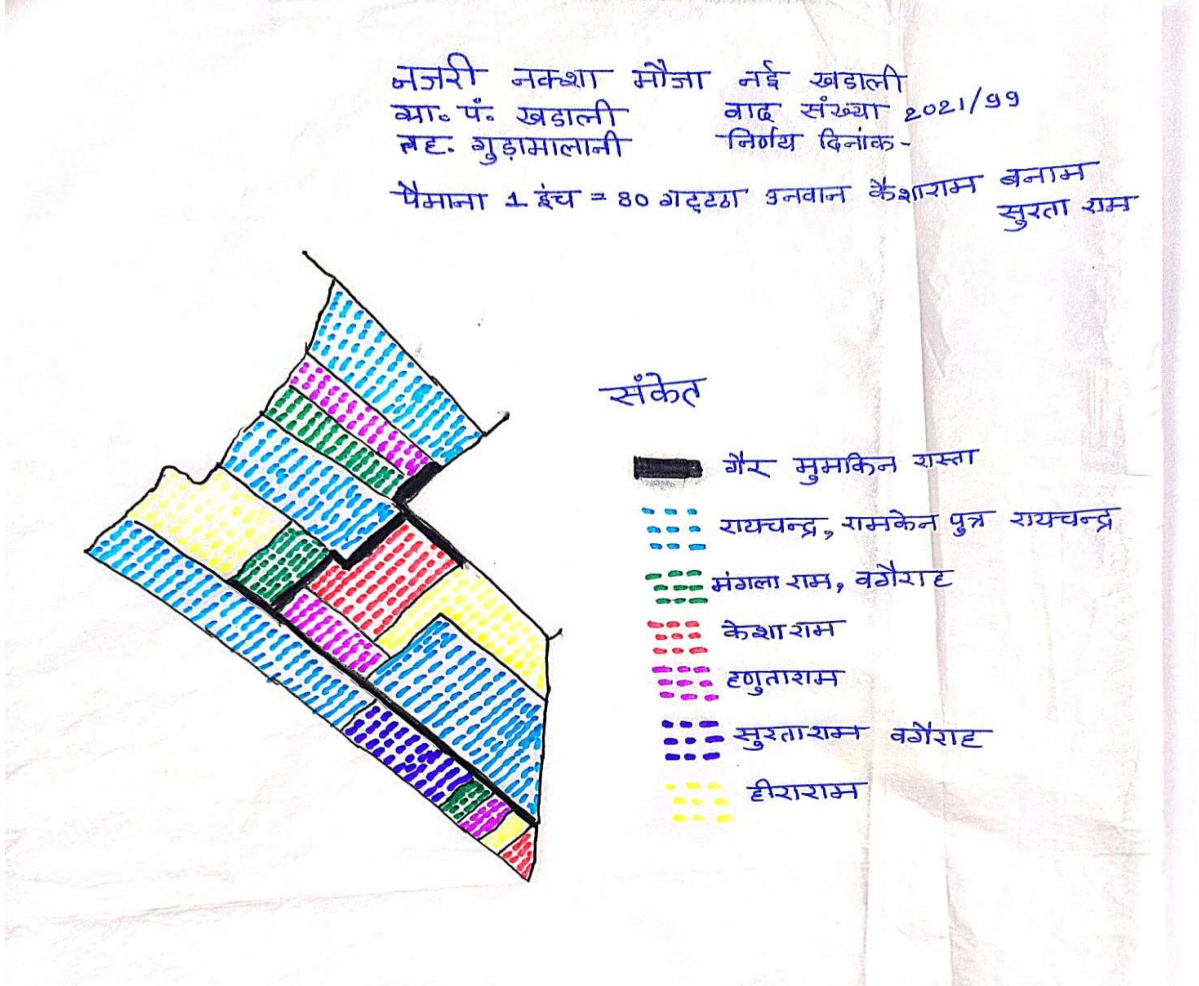 नजरी नक्शा मौजा नई खडाली
ग्रा. पं. खडाली वाद संख्या 2021/99
तह. गुड़ामालानी निर्णय दिनांक -
पैमाना 1 इंच = 80 गट्टठा उनवान कैशाराम बनाम
सुरता राम
संकेत
गैर मुमकिन रास्ता
रायचन्द्र, रामकेन पुत्र रायचन्द्र
मंगला राम, वगैराह
केशा राम
हणुताराम
सुरताराम वगैराह
हीराराम